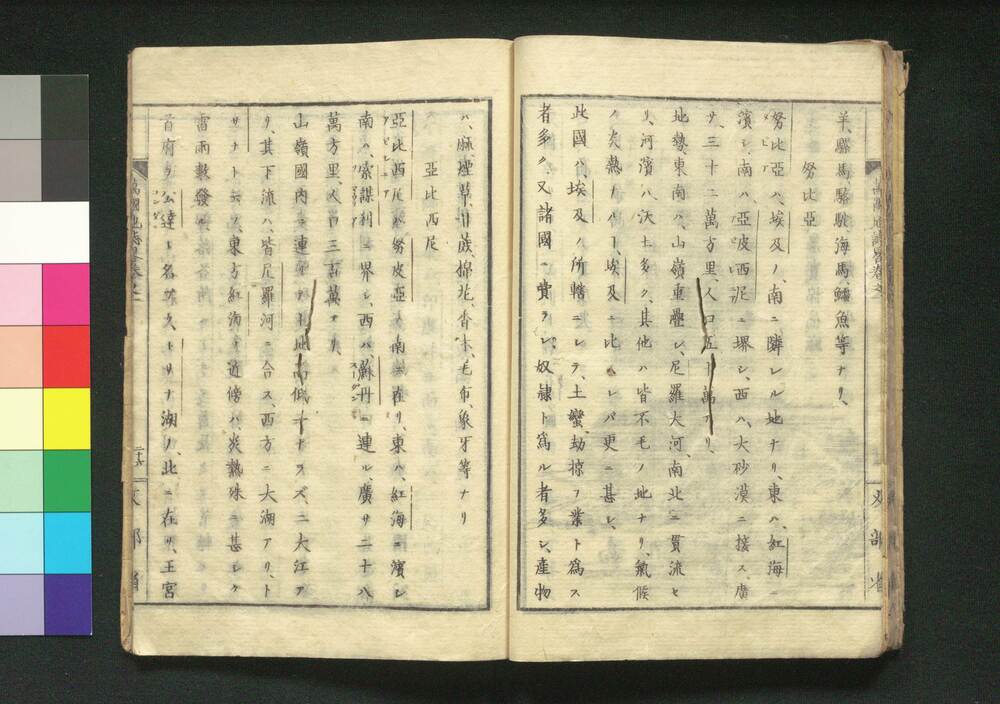 羊、騾馬、駱駝、海馬、鱷魚等ナリ、
努比亞
努比亞ハ、埃及ノ南ニ隣レル地ナリ、東ハ、紅海ニ
濱シ、南ハ、亞皮西泥ニ堺シ、西ハ、大砂漠ニ接ス、廣
サ、三十二萬方里、人口、五十萬アリ、
地勢、東南ハ、山嶺重疊シ、尼羅大河、南北ニ貫流セ
リ、河濱ハ、沃土多ク、其他ハ皆不毛ノ地ナリ、氣候
ノ炎熱ナルヿ、埃及ニ比スレバ更ニ甚シ、
此國ハ、埃及ノ所轄ニシテ、土蠻、劫掠ヲ業ト為ス
者多ク、又諸國ニ賣ラレ、奴隷ト為ル者多シ、產物
ハ、麻、煙草、甘蔗、棉花、香木、毛布、象牙等ナリ
亞比西尼
亞比西尼ハ、努皮亞ノ南ニ在リ、東ハ、紅海ニ濱シ
南ハ、索謀利ニ界シ、西ハ、蘇丹ニ連ル、廣サ二十八
萬方里、人口三百萬アリ、
山嶺國內ニ連リテ、土地高低一ナラズ、二大江ア
リ、其下流ハ、皆尼羅河ニ合ス、西方ニ大湖アリ、ト
サナト云フ、東方紅海ノ近傍ハ、炎熱殊ニ甚シク
雷雨數發ス
首府ヲ公達ト名ク、トサナ湖ノ、此ニ在リ、王宮
萬國地誌畧卷之二
二十六
文部省